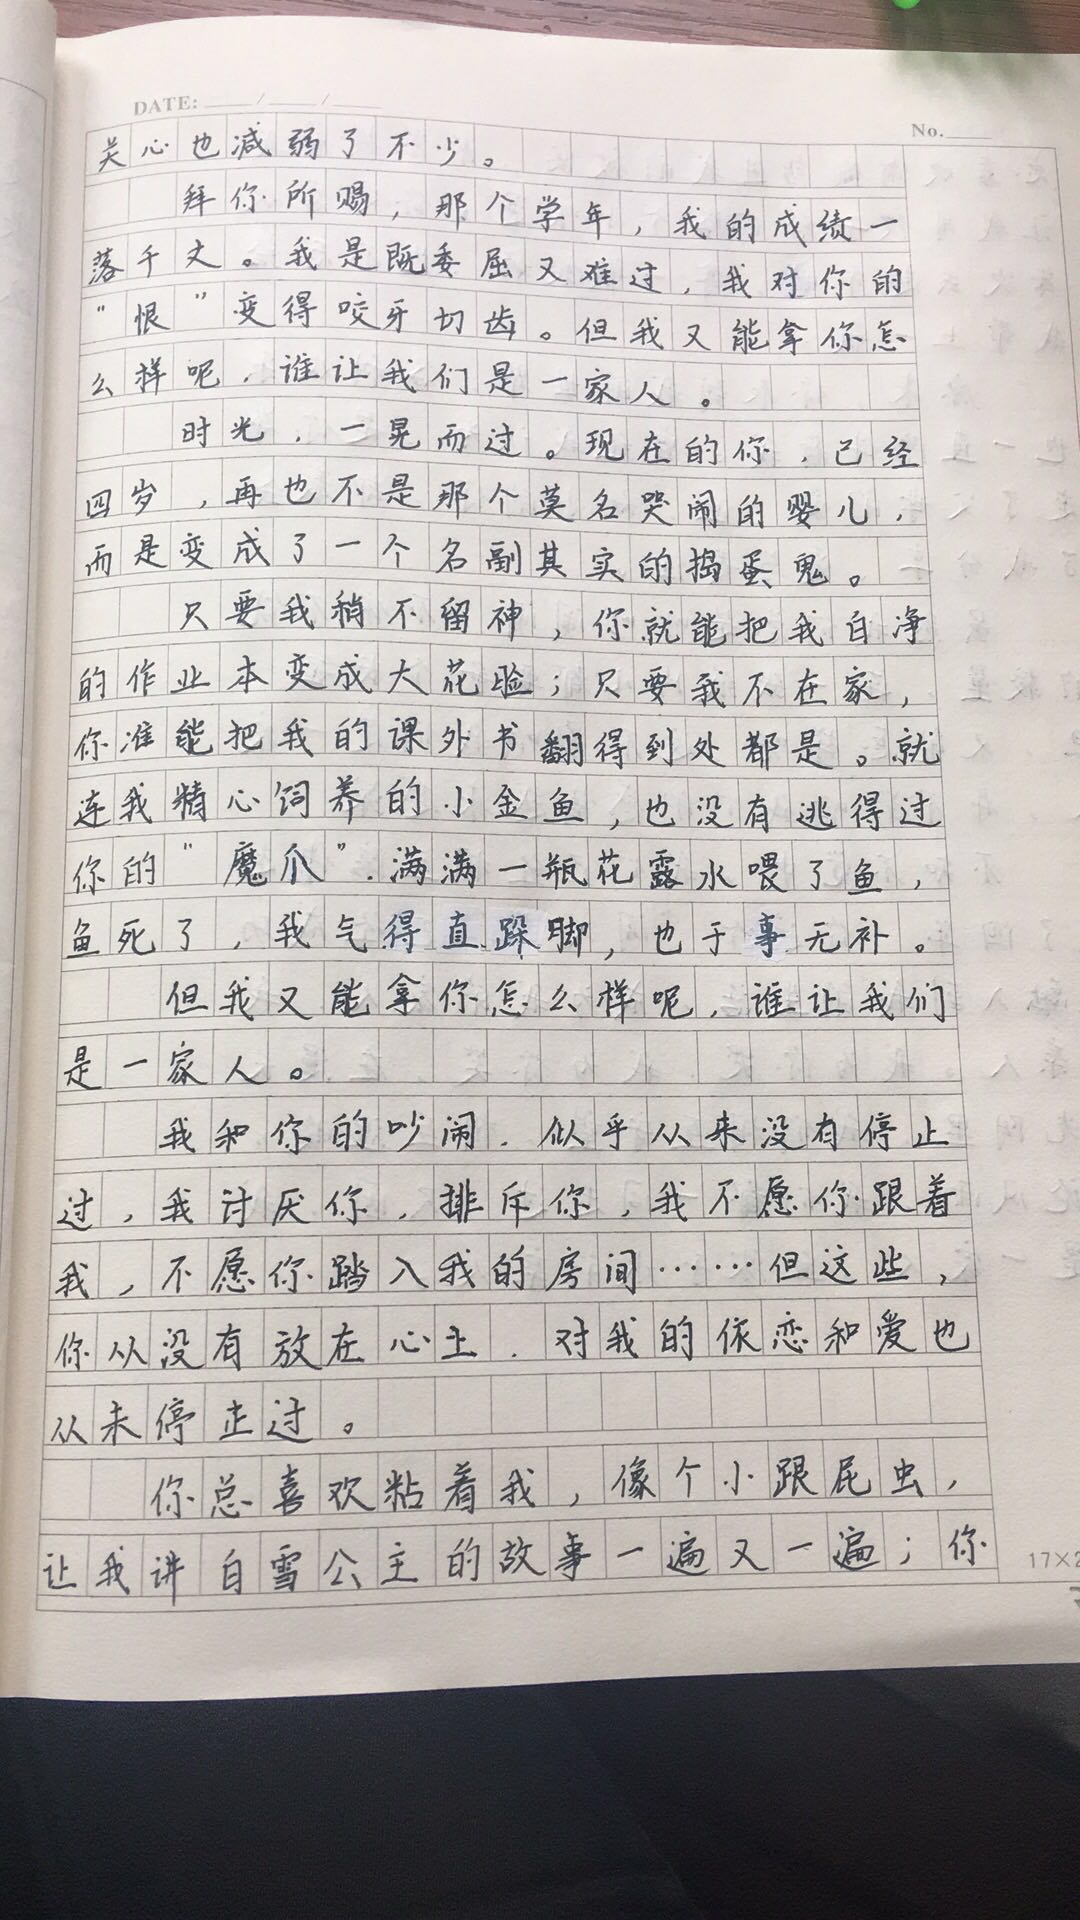 DATE: ___/___/___
No. ___
关心也减弱了不少。
拜你所赐，那个学年，我的成绩一
落千丈。我是既委屈又难过，我对你的
“恨”变得咬牙切齿。但我又能拿你怎
么样呢，谁让我们是一家人。
时光，一晃而过。现在的你，已经
四岁，再也不是那个莫名哭闹的婴儿，
而是变成了一个名副其实的捣蛋鬼。
只要我稍不留神，你就能把我白净
的作业本变成大花脸；只要我不在家，
你准能把我的课外书翻得到处都是。就
连我精心饲养的小金鱼，也没有逃得过
你的“魔爪”.满满一瓶花露水喂了鱼，
鱼死了，我气得直跺脚，也于事无补。
但我又能拿你怎么样呢，谁让我们
是一家人。
我和你的吵闹.似乎从来没有停止
过，我讨厌你，排斥你，我不愿你跟着
我，不愿你踏入我的房间……但这些，
你从没有放在心上.对我的依恋和爱也
从未停止过。
你总喜欢粘着我，像个小跟屁虫，
让我讲白雪公主的故事一遍又一遍；你
17×2